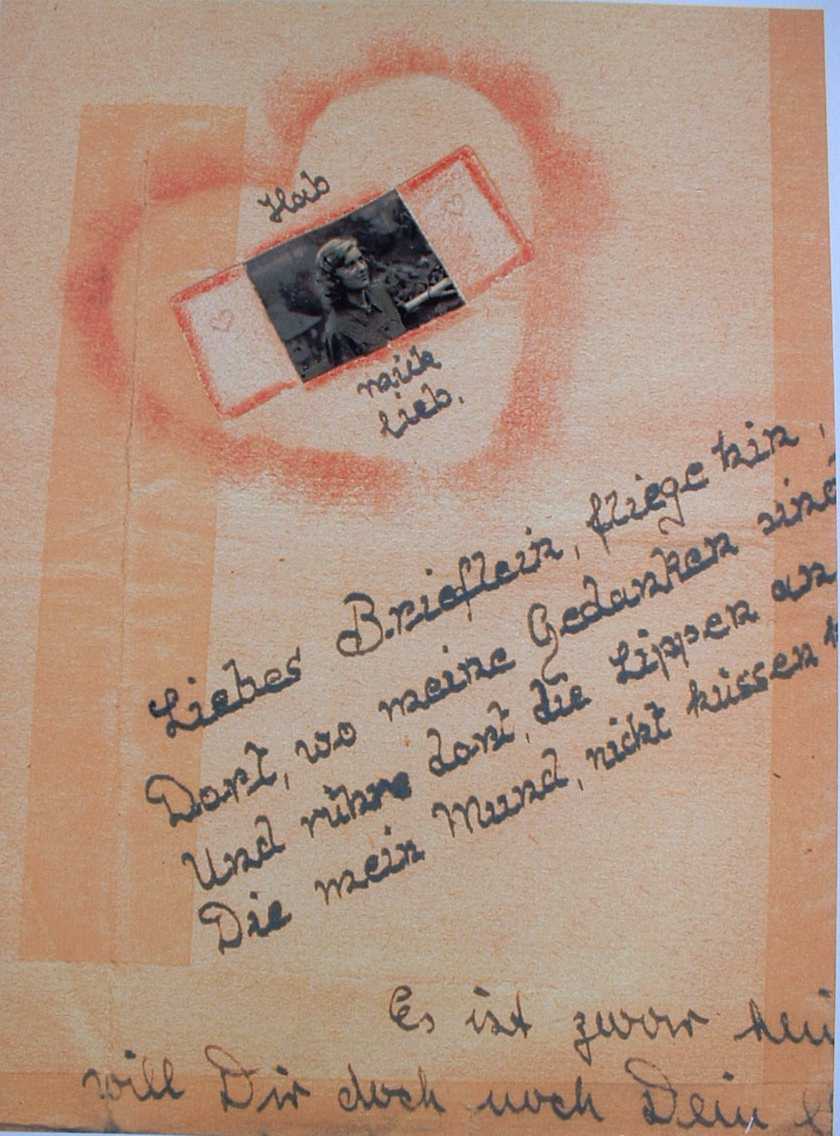 Hab
mich
lieb.
Liebes Brieflein, fliege hin,
Dort, wo meine Gedanken sind
Und rühre dort, die Lippen an
Die mein Mund, nicht küssen
Es ist zwar
will Dir doch noch Dein